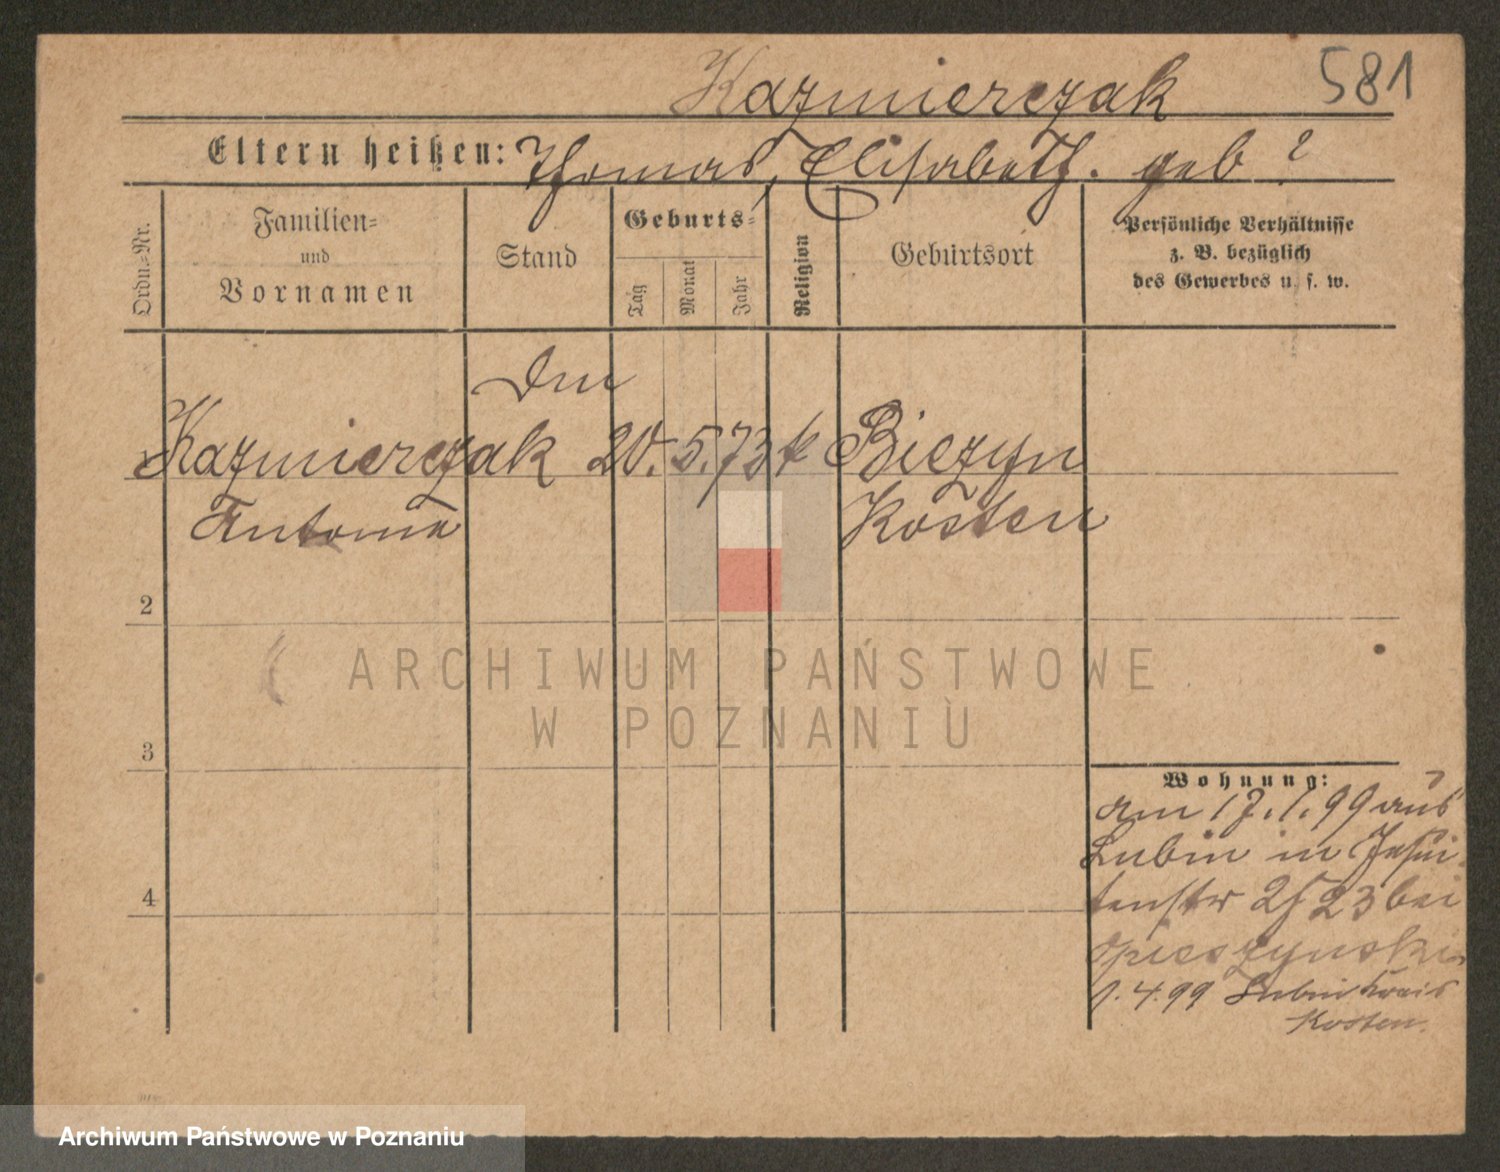 581
Kazmierczak
Eltern heißen: Thomas, Elisabeth. geb ?
Ordn.-Nr.
Familien-
und
Vornamen
Stand
Geburts-
Tag
Monat
Jahr
Religion
Geburtsort
Persönliche Verhältnisse
z. B. bezüglich
des Gewerbes u. s. w.
Kazmierczak 20. 5. 73 k Biezyn
Antonie Kosten
2
ARCHIWUM PAŃSTWOWE
W POZNANIU
3
Wohnung:
am 17.1.99 aus
Lubin in Jesui-
tenstr 23 bei
1.4.99 Lubin Kreis
Kosten.
4
Archiwum Państwowe w Poznaniu